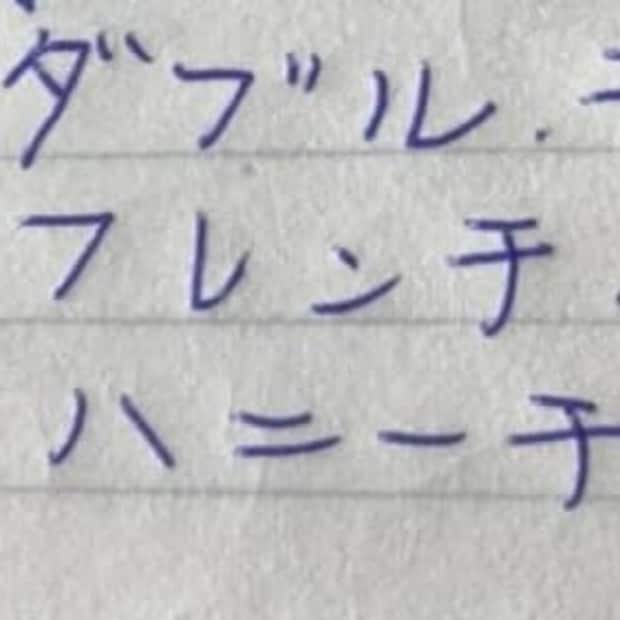 ダブル・
フレンチ
ハニーチ